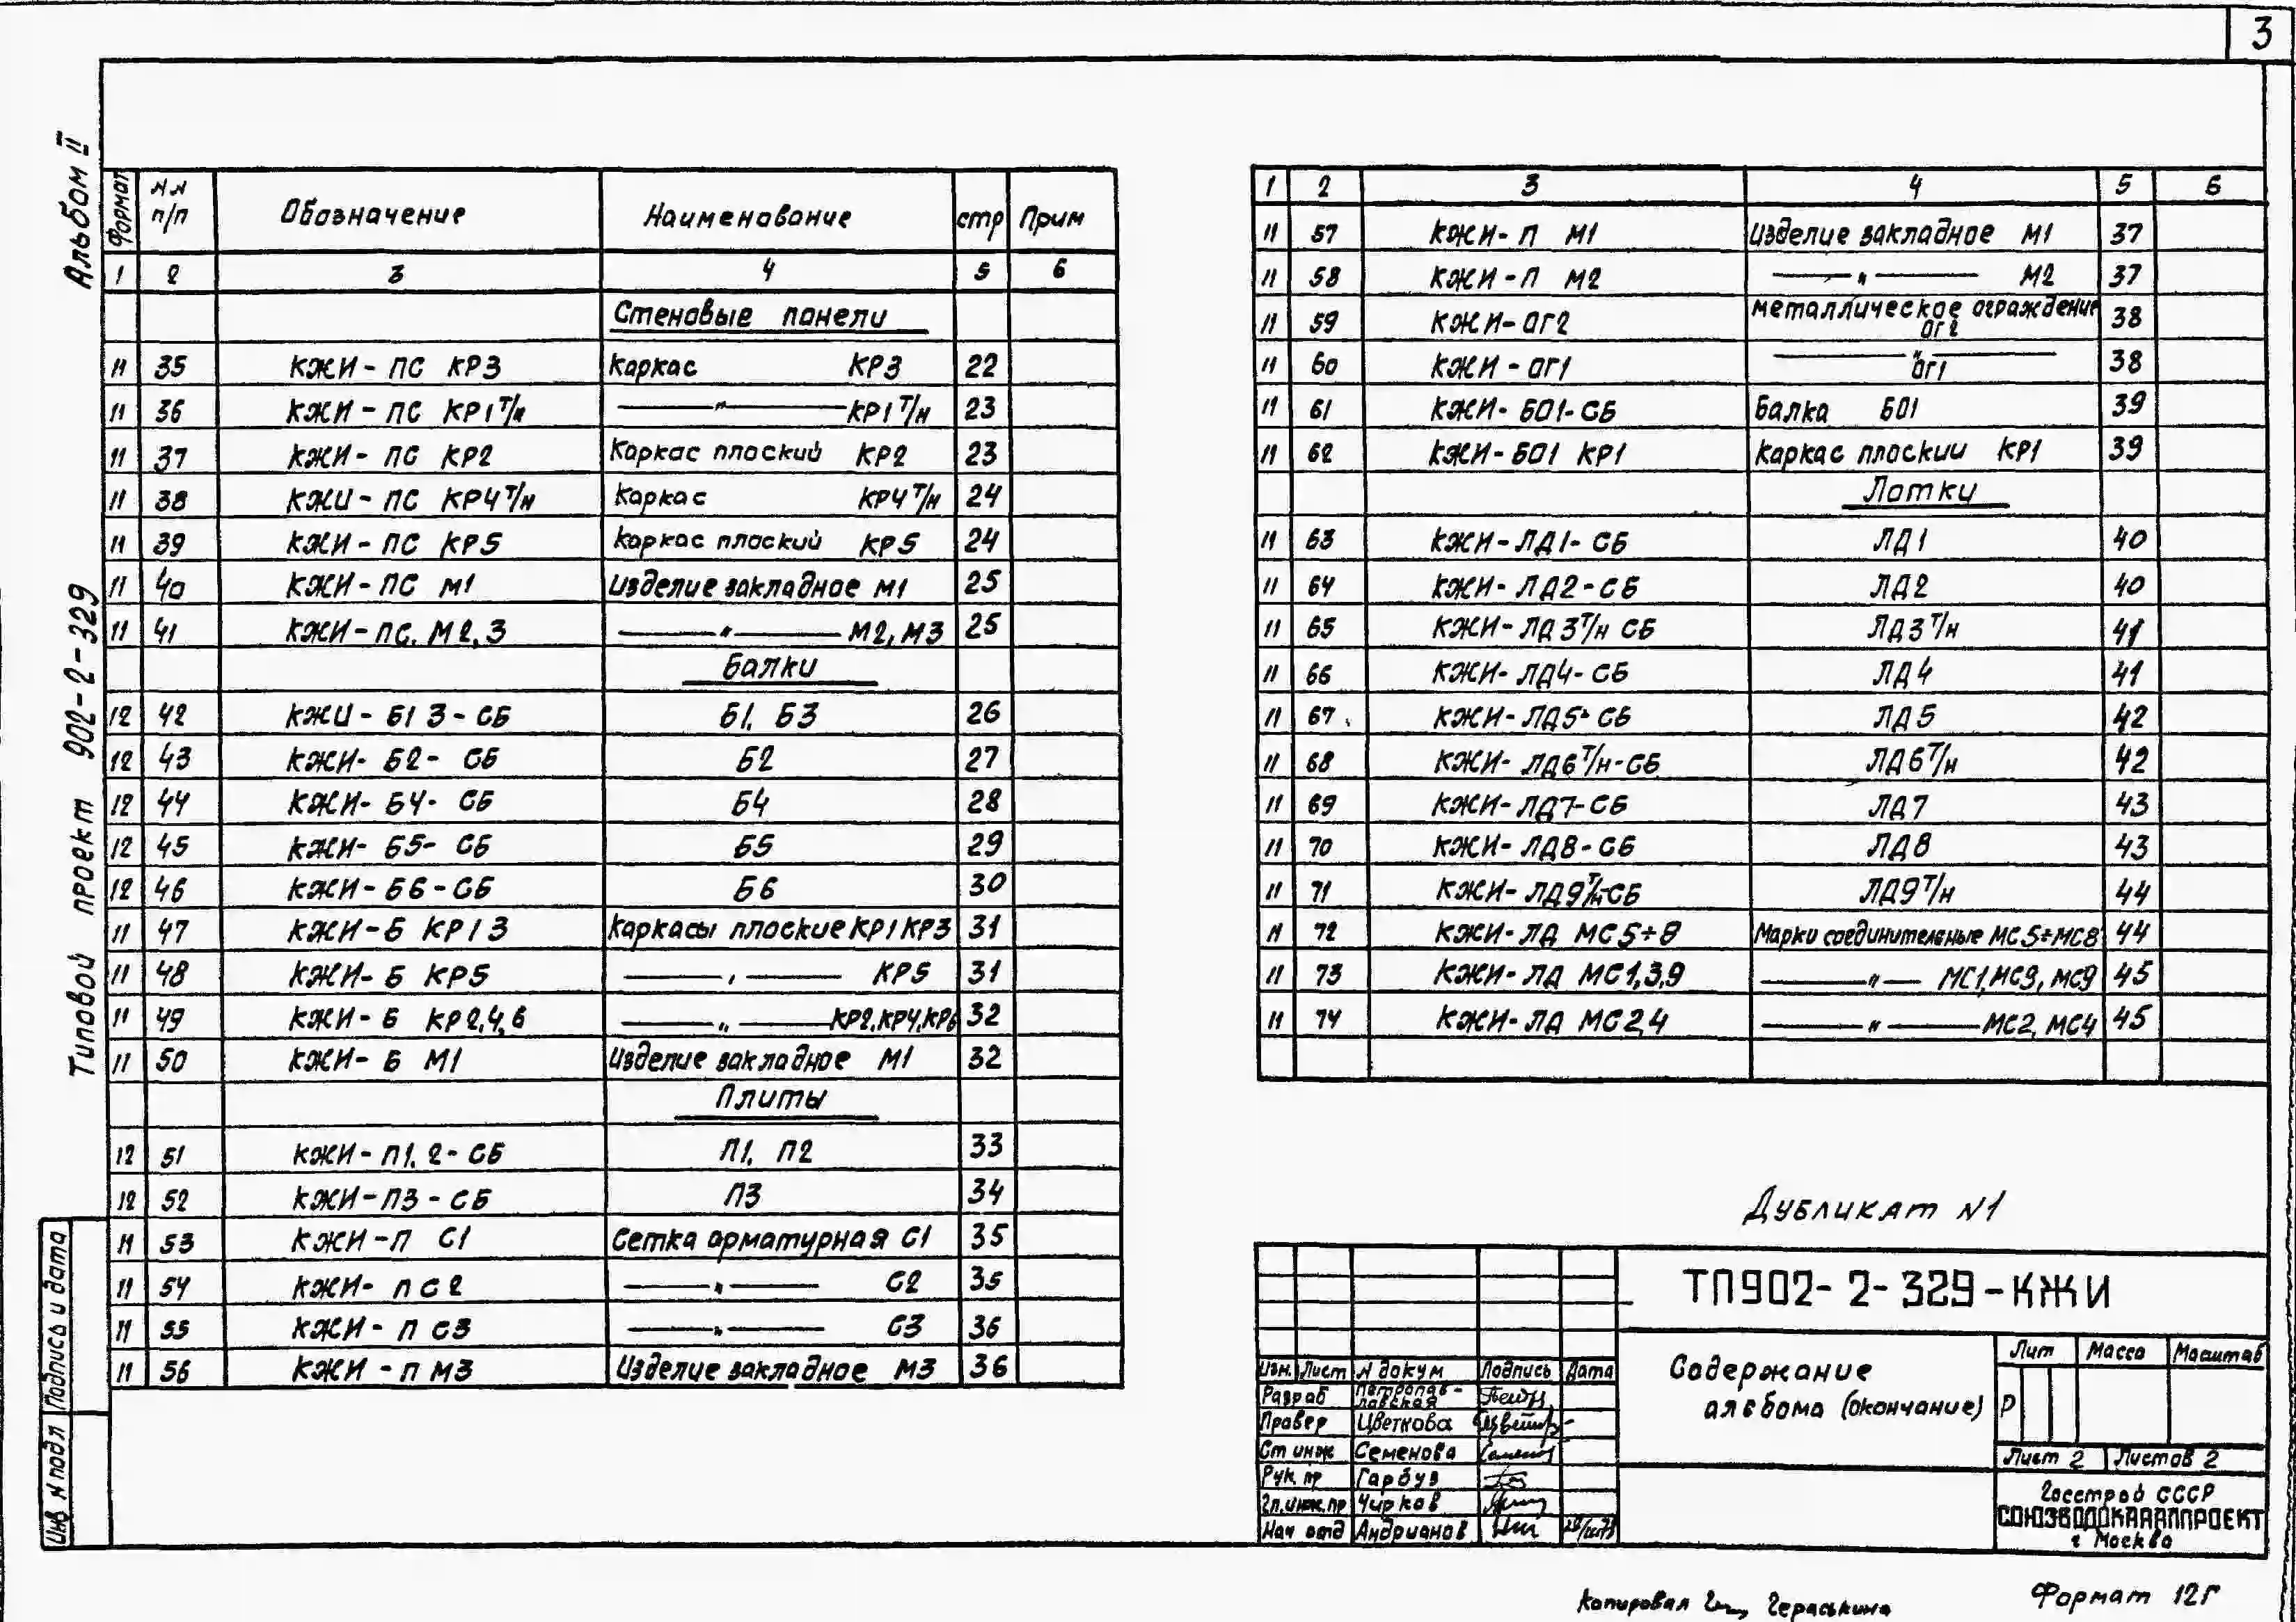 3
Альбом II
Типовой проект 902-2-329
Формат NN п/п Обозначение Наименование стр Прим
1 2 3 4 5 6
Стеновые панели
11 35 КЖИ-ПС КР3 Каркас КР3 22
11 36 КЖИ-ПС КР1 т/н —"— КР1 т/н 23
11 37 КЖИ-ПС КР2 Каркас плоский КР2 23
11 38 КЖИ-ПС КР4 т/н Каркас КР4 т/н 24
11 39 КЖИ-ПС КР5 Каркас плоский КР5 24
11 40 КЖИ-ПС М1 Изделие закладное М1 25
11 41 КЖИ-ПС. М2,3 —"— М2, М3 25
Балки
12 42 КЖИ-Б1 3-СБ Б1, Б3 26
12 43 КЖИ-Б2-СБ Б2 27
12 44 КЖИ-Б4-СБ Б4 28
12 45 КЖИ-Б5-СБ Б5 29
12 46 КЖИ-Б6-СБ Б6 30
11 47 КЖИ-Б КР1 3 Каркасы плоские КР1 КР3 31
11 48 КЖИ-Б КР5 —"— КР5 31
11 49 КЖИ-Б КР2,4,6 —"— КР2, КР4, КР6 32
11 50 КЖИ-Б М1 Изделие закладное М1 32
Плиты
12 51 КЖИ-П1,2-СБ П1, П2 33
12 52 КЖИ-П3-СБ П3 34
11 53 КЖИ-П С1 Сетка арматурная С1 35
11 54 КЖИ-П С2 —"— С2 35
11 55 КЖИ-П С3 —"— С3 36
11 56 КЖИ-П М3 Изделие закладное М3 36
1 2 3 4 5 6
11 57 КЖИ-П М1 Изделие закладное М1 37
11 58 КЖИ-П М2 —"— М2 37
11 59 КЖИ-ОГ2 Металлическое ограждение ОГ2 38
11 60 КЖИ-ОГ1 —"— ОГ1 38
11 61 КЖИ-Б01-СБ Балка Б01 39
11 62 КЖИ-Б01 КР1 Каркас плоский КР1 39
Лотки
11 63 КЖИ-ЛД1-СБ ЛД1 40
11 64 КЖИ-ЛД2-СБ ЛД2 40
11 65 КЖИ-ЛД3 т/н СБ ЛД3 т/н 41
11 66 КЖИ-ЛД4-СБ ЛД4 41
11 67 КЖИ-ЛД5-СБ ЛД5 42
11 68 КЖИ-ЛД6 т/н-СБ ЛД6 т/н 42
11 69 КЖИ-ЛД7-СБ ЛД7 43
11 70 КЖИ-ЛД8-СБ ЛД8 43
11 71 КЖИ-ЛД9 т/н-СБ ЛД9 т/н 44
11 72 КЖИ-ЛД МС5÷8 Марки соединительные МС5÷МС8 44
11 73 КЖИ-ЛД МС1,3,9 —"— МС1, МС3, МС9 45
11 74 КЖИ-ЛД МС2,4 —"— МС2, МС4 45
Дубликат N1
ТП902-2-329-КЖИ
Содержание
альбома (окончание)
Лит Масса Масштаб
Р
Лист 2 Листов 2
Госстрой СССР
СОЮЗВОДОКАНАЛПРОЕКТ
г Москва
Изм. Лист N докум Подпись Дата
Разраб Петропавловская
Провер Цветкова
Ст инж Семенова
Рук. пр Гарбуз
Гл. инж. пр Чирков
Нач отд Андрианов
Подпись и дата
Инв N подл
Копировал Гераськина
Формат 12Г